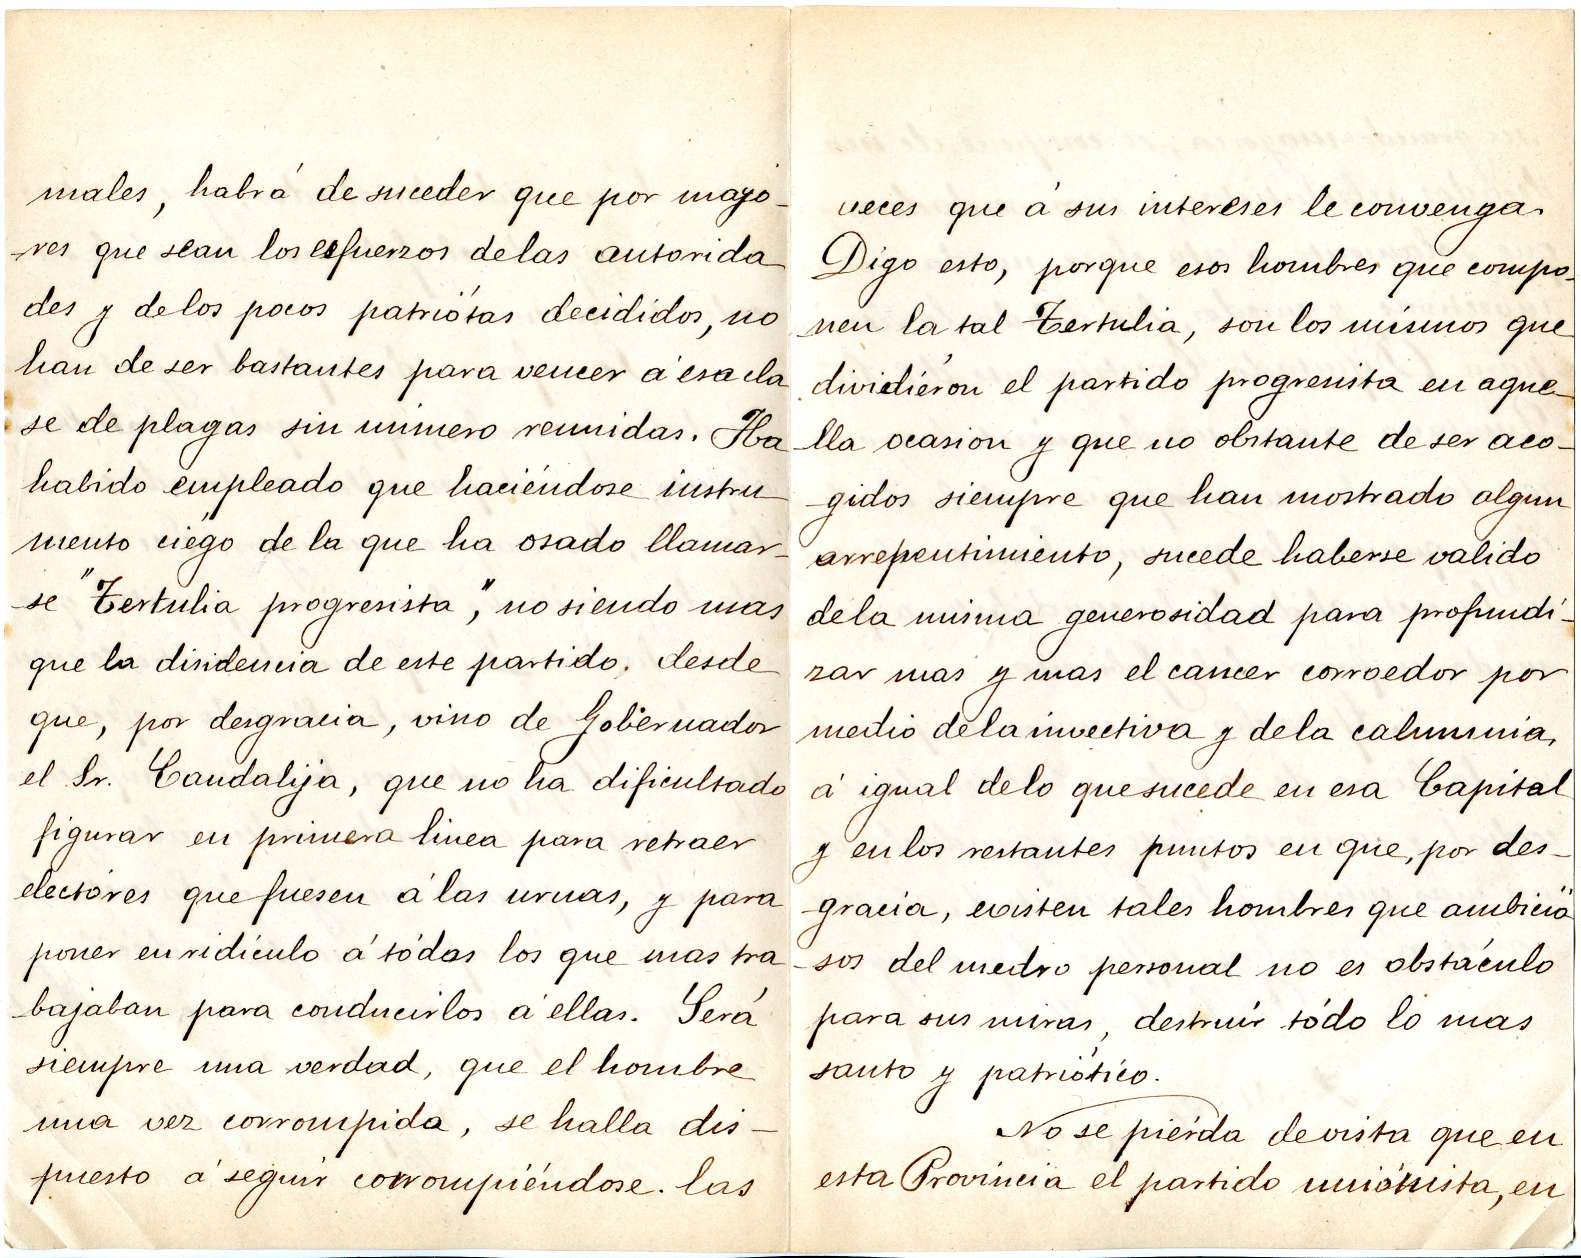 males, habrá de suceder que por mayo-
res que sean los esfuerzos de las autorida
des y de los pocos patriótas decididos, no
han de ser bastantes para vencer á esa cla
se de plagas sin número reunidas. Ha
habido empleado que haciéndose instru
mento ciégo de la que ha osado llamar-
se "Tertulia progresista", no siendo mas
que la disidencia de este partido, desde
que, por desgracia, vino de Gobernador
el Sr. Candalija, que no ha dificultado
figurar en primera linea para retraer
electóres que fuesen á las urnas, y para
poner en ridículo á tódos los que mas tra
bajaban para conducirlos á ellas. Será
siempre una verdad, que el hombre
una vez corrompido, se halla dis-
puesto á seguir corrompiéndose las
veces que á sus intereses le convenga.
Digo esto, porque esos hombres que compo-
nen la tal Tertulia, son los mismos que
dividiéron el partido progresista en aque-
lla ocasion y que no obstante de ser aco-
gidos siempre que han mostrado algun
arrepentimiento, sucede haberse valido
de la misma generosidad para profundi-
zar mas y mas el cancer corroedor por
medio de la invectiva y de la calumnia,
á igual de lo que sucede en esa Capital
y en los restantes puntos en que, por des-
gracia, existen tales hombres que ambicio
sos del medro personal no es obstáculo
para sus miras, destruir tódo lo mas
santo y patriótico.
No se piérda de vista que en
esta Província el partido uniónista, en